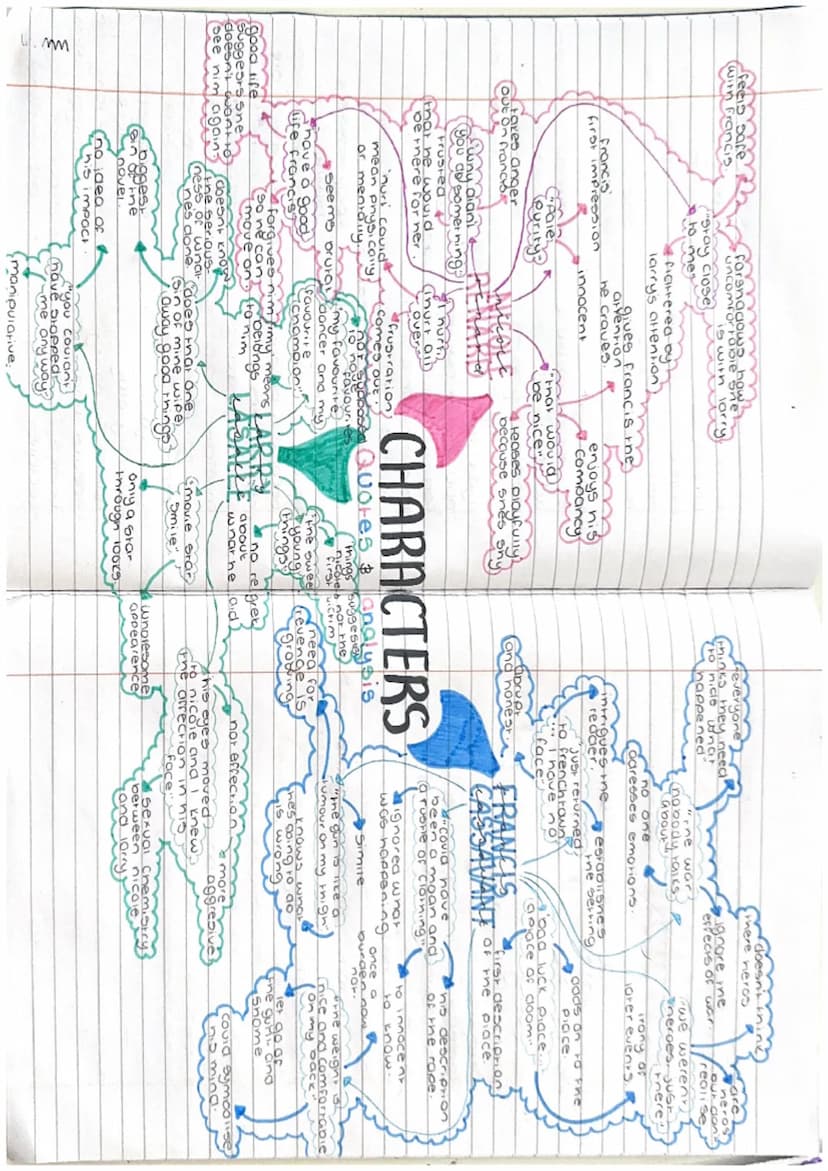 CHARACTERS
Quotes & analysis
NICOLE
RENARD
feels safe
with Francis
"stay close
to me"
forshadows how
uncomfortable she
is with larry
flattered by
larrys attention
Francis'
first impression
"Pale
purity"
innocent
gives Francis the
attention
he craves.
"that would
be nice"
enjoys his
company
teases playfully
because shes shy
takes anger
out on francis
"why didn't
you do something"
trusted
that he would
be there for her.
"I hurt.
I hurt all
over"
'hurt' could
mean physically
or mentally
frustration
comes out.
"have a good
life Francis"
seems brutal
good life
suggests she
doesn't want to
see him again
forgives him
so he can
move on.
LARRY
LASALLE
not supposed
to have
favourites
"my favourite
dancer and my
favourite
champion"
'my' means
belongs
to him
"does that one
sin of mine wipe
away good things"
doesn't know
the serious-
ness of what
hes done
biggest
sin of the
novel.
"you couldn't
have stopped
me anyway"
no idea of
his impact.
manipulative.
"movie star
smile"
only a star
through looks
wholesome
appearence
"the sweet
young
things"
'things' suggests
nicoles not the
first victim
no regret
about
what he did
"his eyes moved
to nicole and I knew
the affection in his
face"
not affection
more
aggresive
sexual chemistry
between nicole
and larry
FRANCIS
CASSAVANT
"just returned
to frenchtown
... I have no
face"
abrupt
and honest
intrigues the
reader.
establishes
the setting
"the war
nobody talks
about"
'everyone'
thinks they need
to hide what
happened
no one
adresses emotions.
ignore the
effects of war.
"we weren't
heroes. just
there"
doesn't think
there heros
are
heros
but don't
realise
irony of
later events
"bad luck place...
a place of doom"
adds on to the
place.
first description
of the place
"could have
been a moan and
a rustle of clothing"
his description
of the rape.
to innocent
to know.
ignored what
was happening
"the gun is like a
tumour on my thigh"
simile
need for
revenge is
growing
knows what
hes going to do
is wrong
"the weight is
nice and comfortable
on my back"
once a
burden now
not.
let go of
the guilt and
shame
could symbolise
his mind.